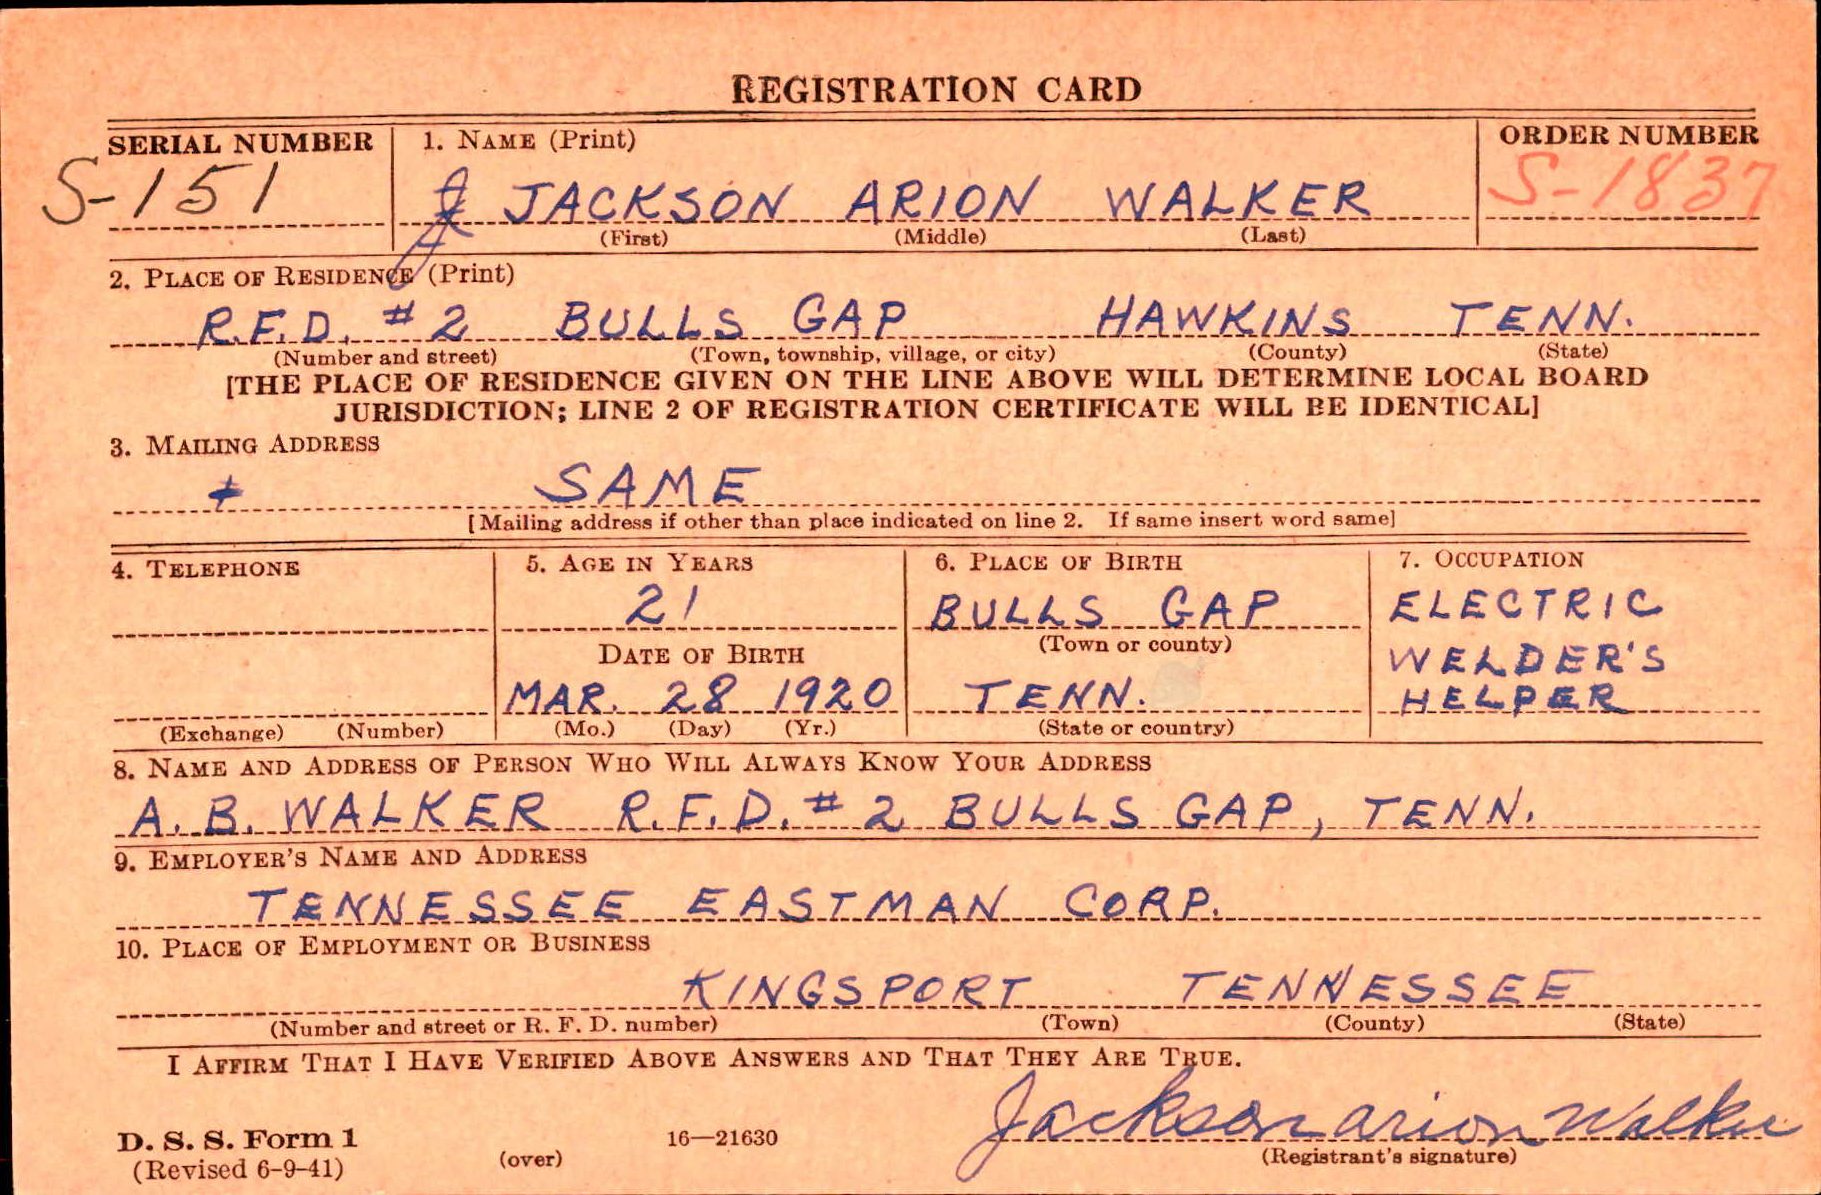 REGISTRATION CARD
SERIAL NUMBER 1. NAME (Print) ORDER NUMBER
S-151 JACKSON ARION WALKER S-1837
(First) (Middle) (Last)
2. PLACE OF RESIDENCE (Print)
R.F.D. #2 BULLS GAP HAWKINS TENN.
(Number and street) (Town, township, village, or city) (County) (State)
[THE PLACE OF RESIDENCE GIVEN ON THE LINE ABOVE WILL DETERMINE LOCAL BOARD
JURISDICTION; LINE 2 OF REGISTRATION CERTIFICATE WILL BE IDENTICAL]
3. MAILING ADDRESS
SAME
[Mailing address if other than place indicated on line 2. If same insert word same]
4. TELEPHONE 5. AGE IN YEARS 6. PLACE OF BIRTH 7. OCCUPATION
21 BULLS GAP ELECTRIC
(Town or county)
DATE OF BIRTH WELDER'S
MAR. 28 1920 TENN. HELPER
(Exchange) (Number) (Mo.) (Day) (Yr.) (State or country)
8. NAME AND ADDRESS OF PERSON WHO WILL ALWAYS KNOW YOUR ADDRESS
A. B. WALKER R.F.D. #2 BULLS GAP, TENN.
9. EMPLOYER'S NAME AND ADDRESS
TENNESSEE EASTMAN CORP.
10. PLACE OF EMPLOYMENT OR BUSINESS
KINGSPORT TENNESSEE
(Number and street or R. F. D. number) (Town) (County) (State)
I AFFIRM THAT I HAVE VERIFIED ABOVE ANSWERS AND THAT THEY ARE TRUE.
Jackson arion Walker
D. S. S. Form 1 16—21630
(Revised 6-9-41) (over) (Registrant's signature)